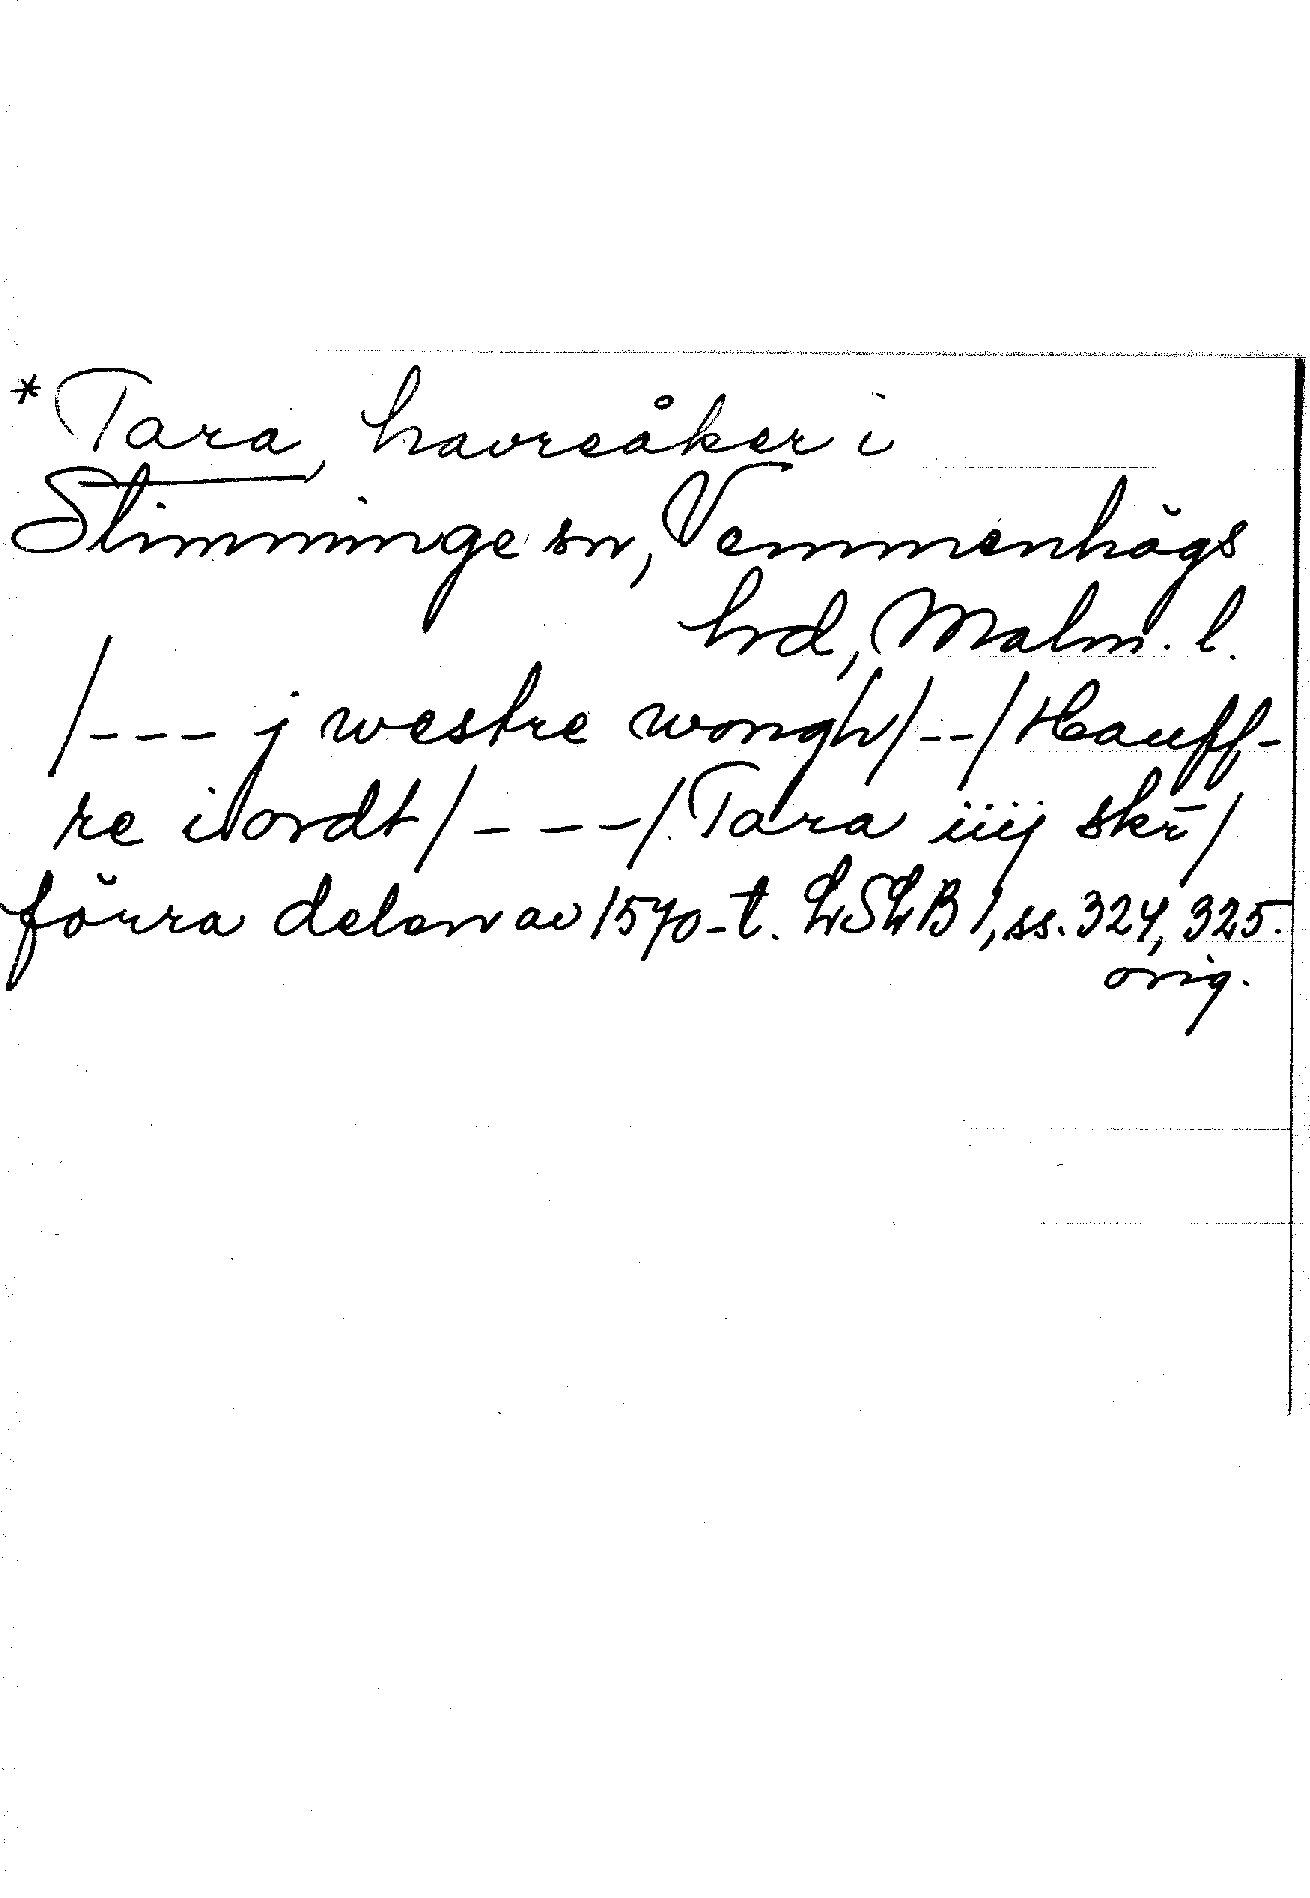 *Tara, havreåker i
Slimminge sn, Vemmenhögs
hrd, Malm. l.
/--- j westre wongh/--/Hauff-
re iordt/---/Tara iiij skr̄/
förra delen av 1570-t. LSLB 1, ss. 324, 325.
orig.